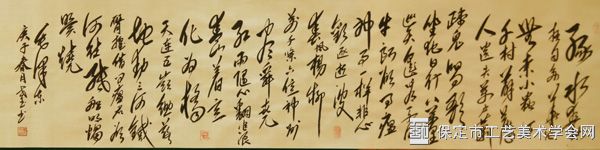 绿水
青山枉自多华佗
无奈小虫何
千村薜荔
人遗矢万户萧
疏鬼唱歌
坐地日行八万里
巡天遥看一千河
牛郎欲问瘟
神事一样悲
欢逐逝波
春风杨柳
万千条六亿神州
尽舜尧
红雨随心翻作浪
青山着意
化为桥
天连五岭银锄落
地动三河铁
臂摇借问瘟君欲
何往纸船明烛
照天烧
毛泽东
庚子春月书
保定市工艺美术学会网